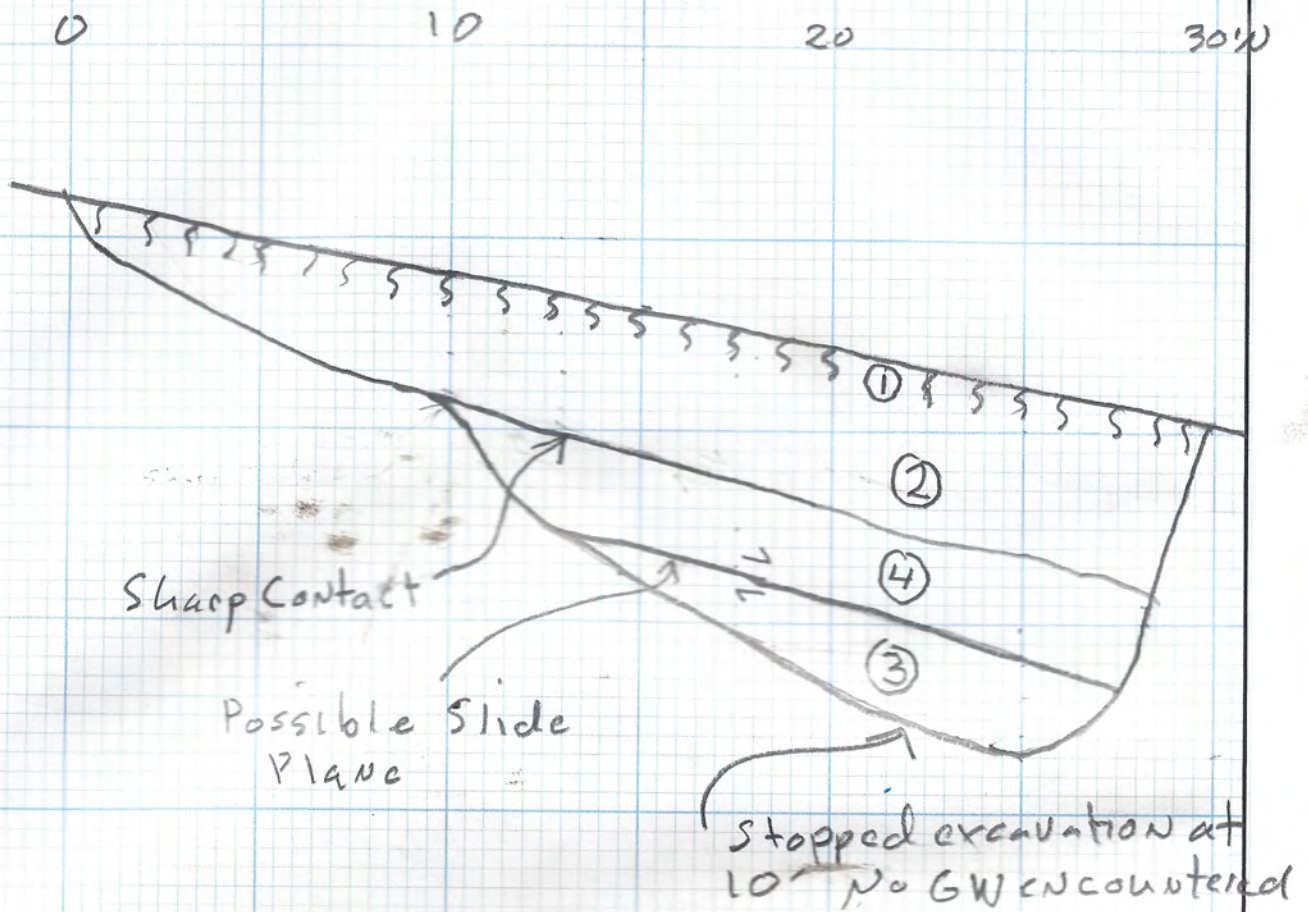 0 10 20 30'N
①
②
④
③
Sharp Contact
Possible Slide
Plane
Stopped excavation at
10' No GW encountered